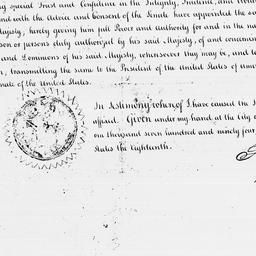 ng special Trust and Confidence in the Integrity, Prudence, and
and with the Advice and Consent of the Senate have appointed the sa
Majesty, hereby giving him full Power and Authority for and in the na
son or persons duly authorized by his said Majesty, of and concerni
and Dominions of his said Majesty, wheresoever they may be, and to
transmitting the same to the President of the United States of Amer
nate of the United States.
In Testimony whereof I have caused the S
affixed. Given under my hand at the City o
one thousand seven hundred and ninety four
States the Eighteenth.